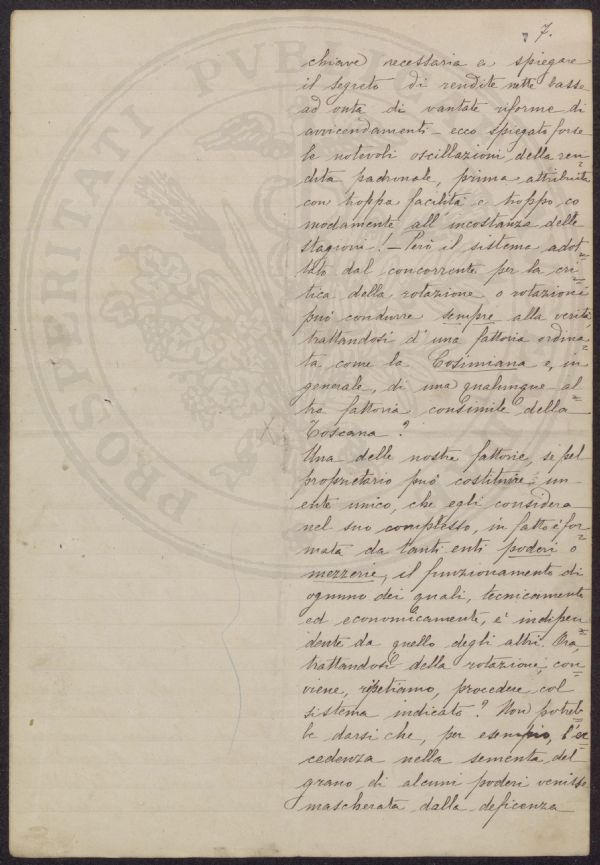 7.
chiave necessaria a spiegare
il segreto di rendite nette basse
ad onta di vantate riforme di
avvicendamenti - ecco spiegato forse
le notevoli oscillazioni della ren=
dita padronale, prima attribuita
con troppa facilità e troppo co
modamente all'incostanza delle
stagioni! - Però il sistema adot=
tato dal concorrente per la cri=
tica della rotazione o rotazioni
può condurre sempre alla verità,
trattandosi d'una fattoria ordina=
ta come la Cosimiana e, in
generale, di una qualunque al=
tra fattoria consimile della
Toscana?
Una delle nostre fattorie, se pel
proprietario può costituire un
ente unico, che egli considera
nel suo complesso, in fatto è for=
mata da tanti enti poderi o
mezzerie, il funzionamento di
ognuno dei quali, tecnicamente
ed economicamente, è indipen=
dente da quello degli altri. Ora,
trattandosi della rotazione, con=
viene, ripetiamo, procedere col
sistema indicato? Non potreb=
be darsi che, per esempio, l'ec=
cedenza nella sementa del
grano di alcuni poderi venisse
mascherata dalla deficenza
PROSPERITATI PUBLIC